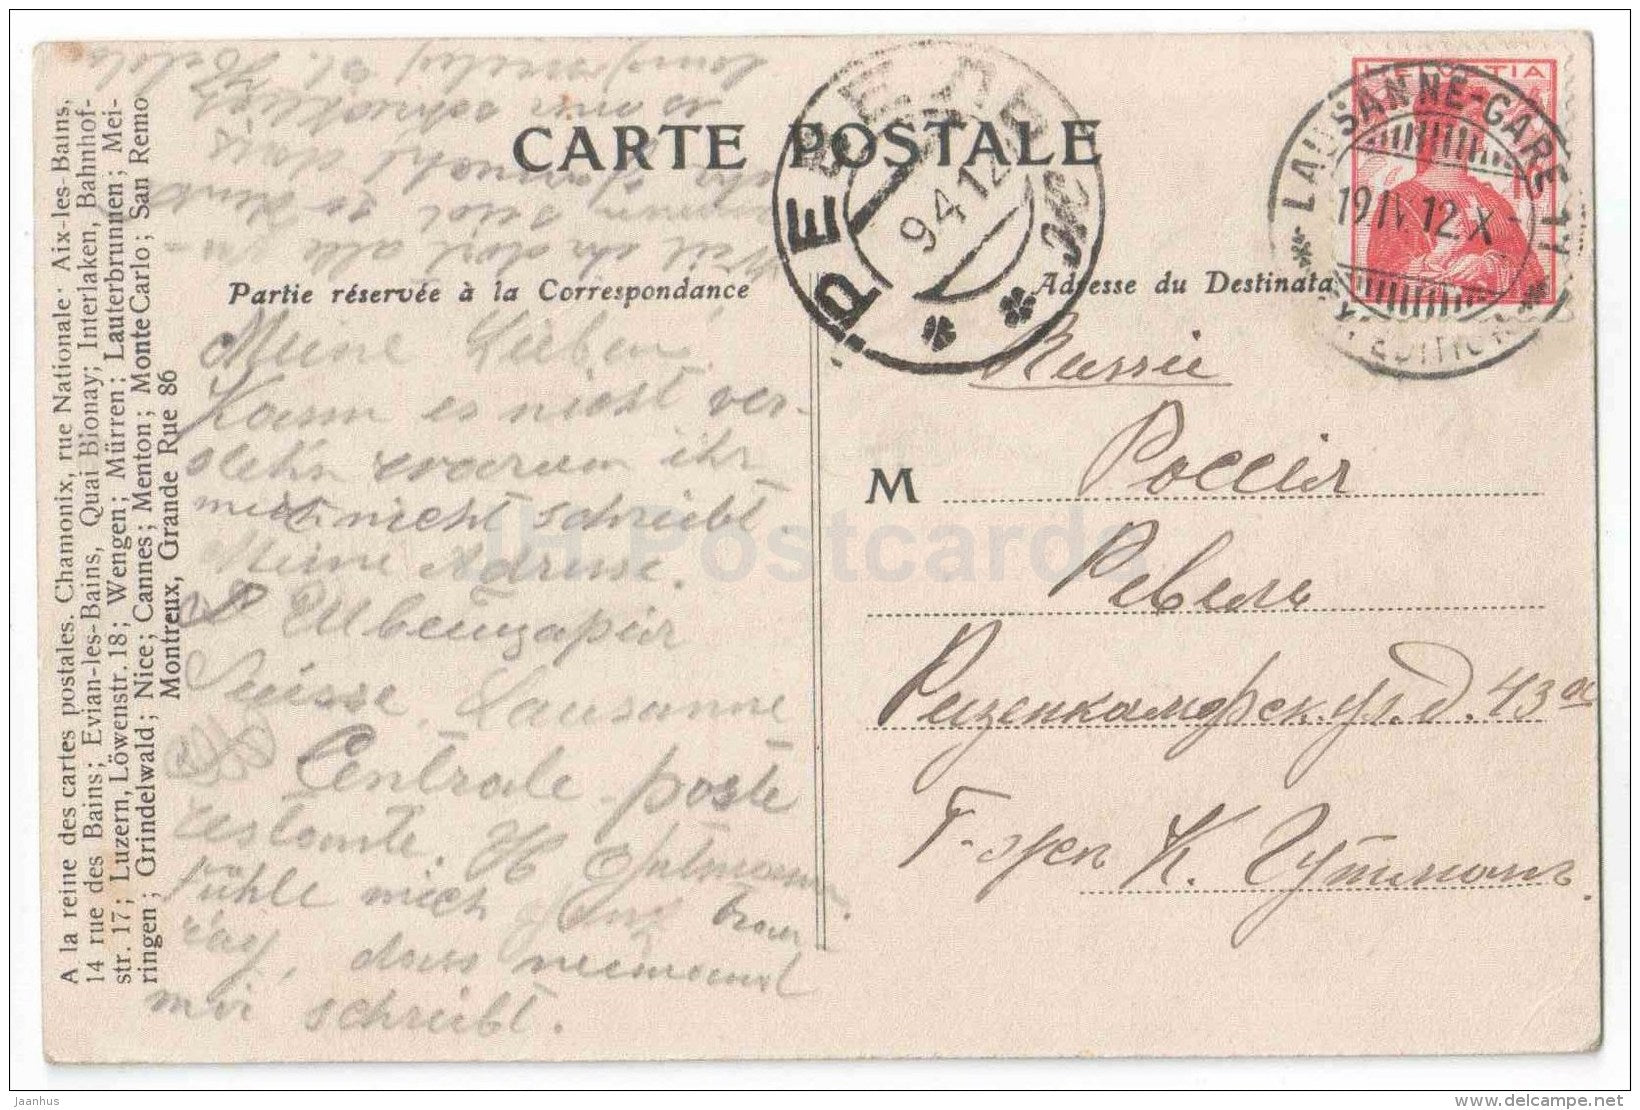 CARTE POSTALE
Partie réservée à la Correspondance
Adresse du Destinata
A la reine des cartes postales. Chamonix, rue Nationale · Aix-les-Bains,
14 rue des Bains; Evian-les-Bains, Quai Blonay; Interlaken, Bahnhof-
str. 17; Luzern, Löwenstr. 18; Wengen; Mürren; Lauterbrunnen; Mei-
ringen; Grindelwald; Nice; Cannes; Menton; Monte Carlo; San Remo
Montreux, Grande Rue 86
HELVETIA
LAUSANNE-GARE
19.IV.12.X
9412
Meine Lieben,
Kann es nicht ver-
stehn warum ihr
mich nicht schreibt.
Meine Adresse.
Швейцарія
Suisse. Lausanne
Centrale poste
restante. H Gutmann.
fühle mich ganz trau
rig, dass niemand
mir schreibt.
Russie
Россія
М
Ревель
Риценкамфск. ул. д. 43 а
Г-жѣ К. Гутманъ.
JH Postcards
jaanhus
www.delcampe.net